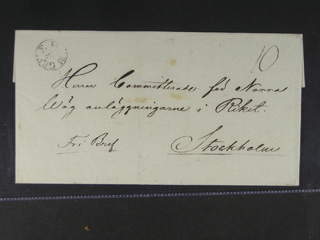 10
Herrar Committerade för Norra
Väg anläggningarne i Riket.
Fri Bref
Stockholm